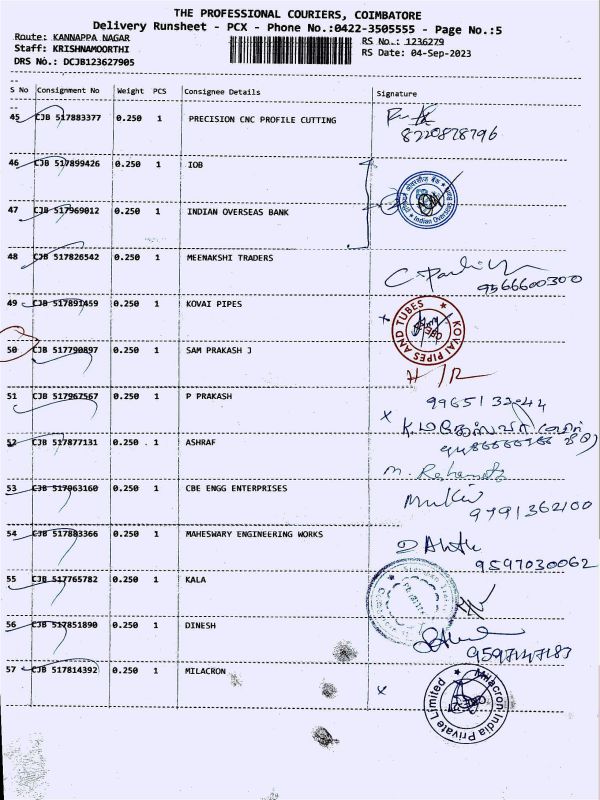 THE PROFESSIONAL COURIERS, COIMBATORE
Delivery Runsheet - PCX - Phone No.:0422-3505555 - Page No.:5
Route: KANNAPPA NAGAR
RS No.: 1236279
Staff: KRISHNAMOORTHI
RS Date: 04-Sep-2023
DRS No.: DCJB123627905
S No Consignment No Weight PCS Consignee Details Signature
45 CJB 517883377 0.250 1 PRECISION CNC PROFILE CUTTING
8220878796
46 CJB 517899426 0.250 1 IOB
Indian Overseas Bank
47 CJB 517969012 0.250 1 INDIAN OVERSEAS BANK
48 CJB 517826542 0.250 1 MEENAKSHI TRADERS
9566600300
49 CJB 517891459 0.250 1 KOVAI PIPES
KOVAI PIPES AND TUBES
50 CJB 517790897 0.250 1 SAM PRAKASH J
H/R
51 CJB 517967567 0.250 1 P PRAKASH
9965132944
52 CJB 517877131 0.250 1 ASHRAF
53 CJB 517963160 0.250 1 CBE ENGG ENTERPRISES
9791362100
54 CJB 517883366 0.250 1 MAHESWARY ENGINEERING WORKS
9597030062
55 CJB 517765782 0.250 1 KALA
56 CJB 517851890 0.250 1 DINESH
9597147183
57 CJB 517814392 0.250 1 MILACRON
Milacron India Private Limited